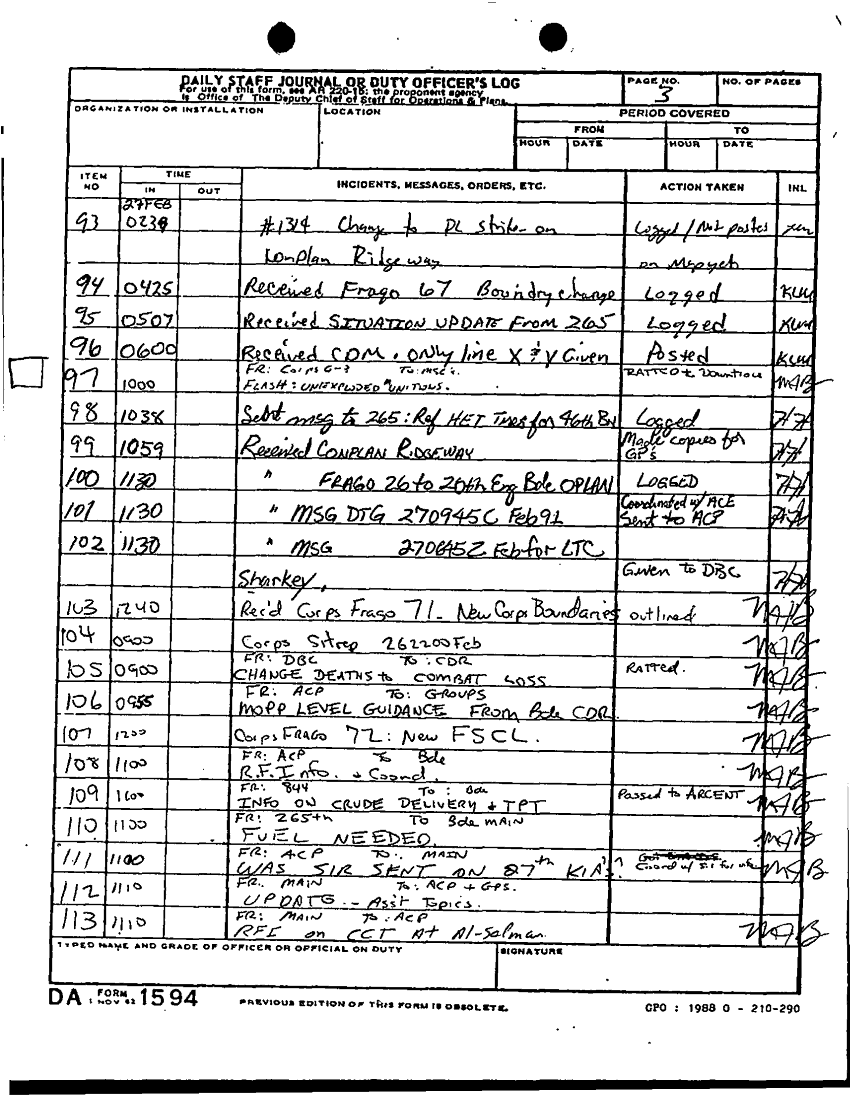 DAILY STAFF JOURNAL OR DUTY OFFICER'S LOG
For use of this form, see AR 220-15; the proponent agency
is Office of The Deputy Chief of Staff for Operations & Plans.
PAGE NO.
3
NO. OF PAGES
ORGANIZATION OR INSTALLATION
LOCATION
PERIOD COVERED
FROM
TO
HOUR DATE HOUR DATE
ITEM NO
TIME
IN OUT
INCIDENTS, MESSAGES, ORDERS, ETC.
ACTION TAKEN
INL
27 FEB
93 0238 #1314 Change to PL strike on Logged / Not posted
Conplan Ridgeway on Mapyet
94 0425 Received Frago 67 Boundry change Logged KLM
95 0507 Received SITUATION UPDATE From 265 Logged KLM
96 0600 Received COM. only line X & Y Given Posted KLM
97 1000 FR: Corps G-3 TO: MSC's. MAB
FLASH: UNEXPLODED MUNITIONS.
98 1038 Sent msg to 265: Ref HET Tnes for 46th BN Logged
99 1059 Received CONPLAN RIDGEWAY Made copies for GP's
100 1130 " FRAGO 26 to 20th Eng Bde OPLAN LOGGED
101 1130 " MSG DTG 270945C Feb 91 Coordinated w/ ACE Sent to ACP
102 1130 " MSG 270645Z Feb for LTC
Sharkey. Given to DBC
103 1240 Rec'd Corps Frago 71 - New Corps Boundaries outlined MAB
104 0900 Corps Sitrep 262200 Feb MAB
105 0900 FR: DBC TO: CDR RATTed. MAB
CHANGE DEATHS to COMBAT LOSS
106 0955 FR: ACP TO: GROUPS
MOPP LEVEL GUIDANCE FROM Bde CDR. MAB
107 1200 Corps FRAGO 72: New FSCL. MAB
108 1100 FR: ACP To Bde
R.F. Info. & Coord. MAB
109 1600 FR: 844 To: Bde Passed to ARCENT MAB
INFO ON CRUDE DELIVERY & TPT
110 1100 FR: 265th TO Bde MAIN
FUEL NEEDED. MAB
111 1100 FR: ACP TO: MAIN
WAS SIR SENT ON 27th KIA's? MAB
112 1110 FR. MAIN TO: ACP & GPS.
UPDATE - Ass't Topics.
113 1110 FR: MAIN TO: ACP
RFI on CCT At Al-Salman. MAB
TYPED NAME AND GRADE OF OFFICER OR OFFICIAL ON DUTY
SIGNATURE
DA FORM 1 NOV 62 1594
PREVIOUS EDITION OF THIS FORM IS OBSOLETE.
GPO : 1988 O - 210-290